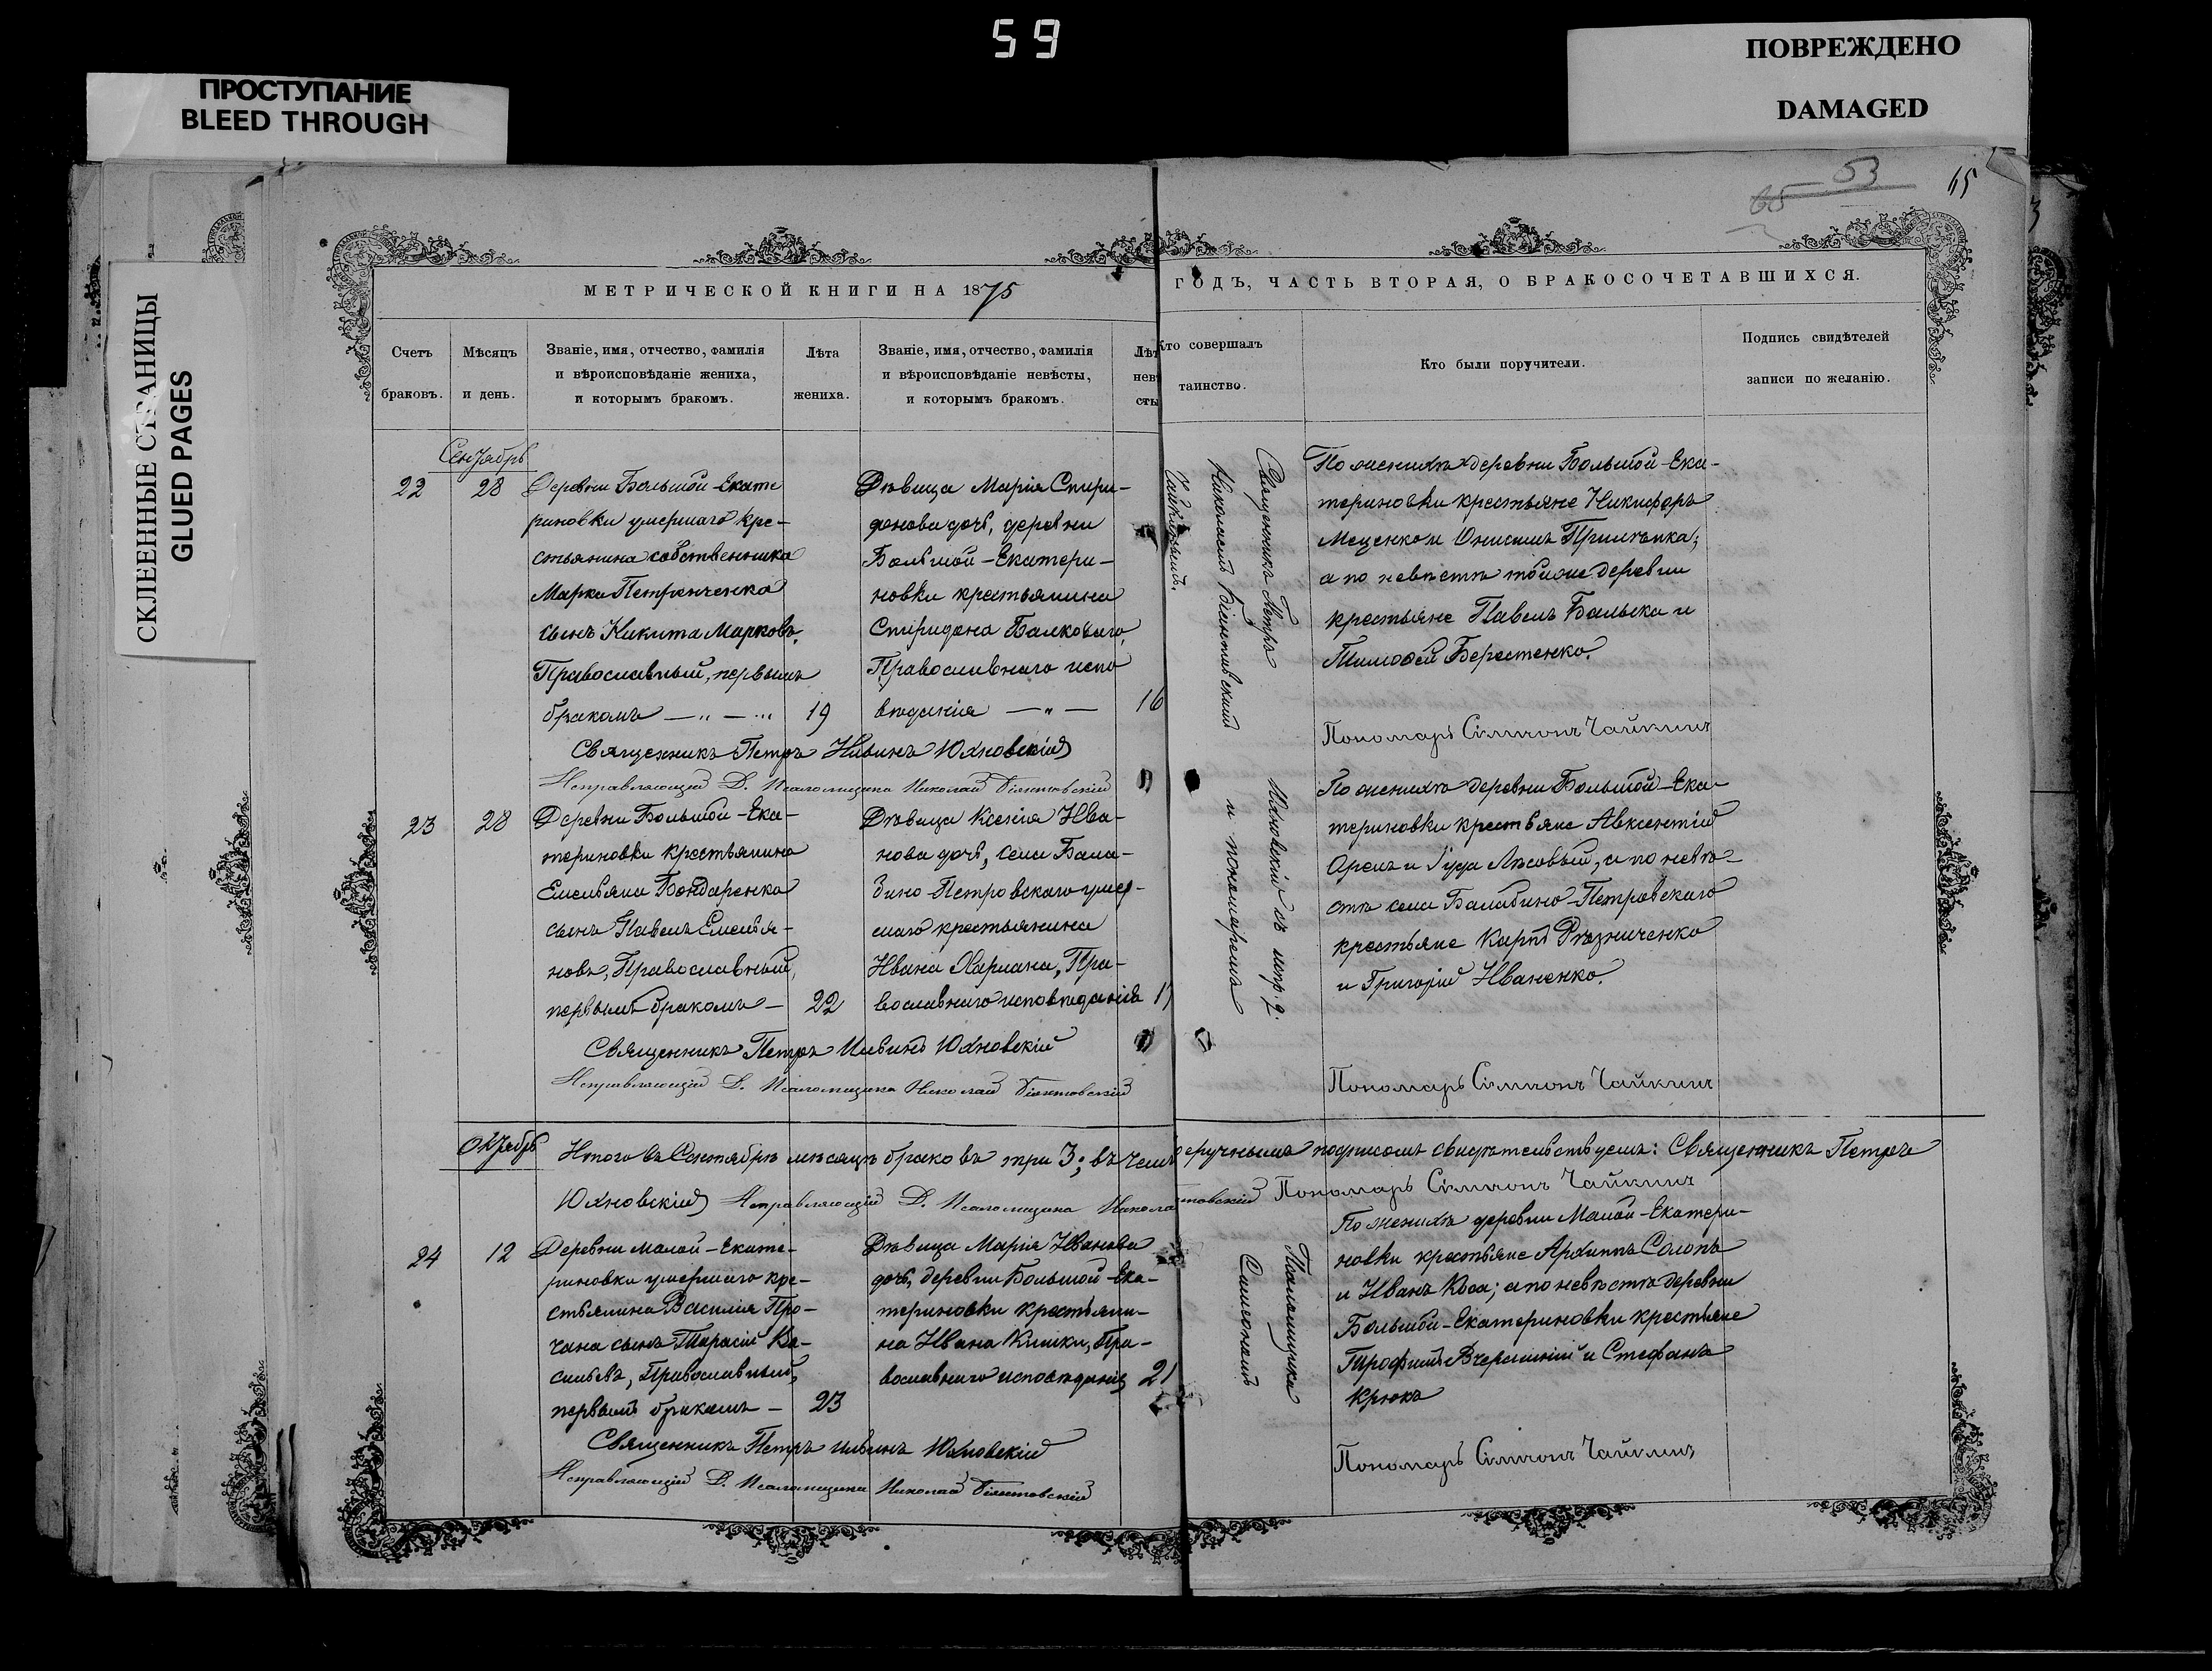 59
ПРОСТУПАНИЕ
BLEED THROUGH
ПОВРЕЖДЕНО
DAMAGED
СКЛЕЕННЫЕ СТРАНИЦЫ
GLUED PAGES
65 53 65
МЕТРИЧЕСКОЙ КНИГИ НА 1875
ГОДЪ, ЧАСТЬ ВТОРАЯ, О БРАКОСОЧЕТАВШИХСЯ.
Счетъ
браковъ.
Мѣсяцъ
и день.
Званіе, имя, отчество, фамилія
и вѣроисповѣданіе жениха,
и которымъ бракомъ.
Лѣта
жениха.
Званіе, имя, отчество, фамилія
и вѣроисповѣданіе невѣсты,
и которымъ бракомъ.
Лѣт
нев
сты
Кто совершалъ
таинство.
Кто были поручители.
Подпись свидѣтелей
записи по желанію.
Сентябрь
22
28
Деревни Большой-Екате
риновки умершаго кре-
стьянина собственника
Марка Петренченка
сынъ Никита Марковъ,
Православный, первымъ
бракомъ
19
Дѣвица Марія Спири-
донова дочь, деревни
Большой-Екатери-
новки крестьянина
Спиридона Балковаго,
Православнаго испо
вѣданія
16
Священникъ Петръ
Николаемъ
Чайкинымъ.
По женихѣ деревни Большой-Ека-
териновки крестьяне Никифоръ
Мещенко и Онисимъ
а по невѣстѣ тойже деревни
крестьяне Павелъ и
Тимофей Берестенко.
Священникъ Петръ Ильинъ Юхновскій
Исправляющій Д. Псаломщика Николай
Пономарь Симеонъ Чайкинъ
23
28
Деревни Большой-Ека-
териновки крестьянина
Емельяна Бондаренка
сынъ Павелъ Емелья-
новъ, Православный,
первымъ бракомъ
22
Дѣвица Ксенія Ива-
нова дочь, села Бала-
бино-Петровскаго умер-
шаго крестьянина
Ивана Харлана, Пра-
вославнаго исповѣданія
17
Юхновскій съ испр: д.
и пономаремъ
По женихѣ деревни Большой-Ека-
териновки крестьяне Авксентій
Орелъ и Іуда Лѣсовый, а по невѣ-
стѣ села Балабино-Петровскаго
крестьяне Карпъ Рѣзниченко
и Григорій Иваненко.
Священникъ Петръ Ильинъ Юхновскій
Исправляющій Д. Псаломщика Николай
Пономарь Симеонъ Чайкинъ
Октябрь
Итого въ Сентябрѣ мѣсяцѣ браковъ три 3; въ чемъ
еручнымъ подписомъ свидѣтельствуемъ: Священникъ Петръ
Юхновскій Исправляющій Д. Псаломщика Никола
товскій Пономарь Симеонъ Чайкинъ
24
12
Деревни Малой-Екате-
риновки умершаго кре-
стьянина Василія Про-
чана сынъ Тарасій Ва-
сильевъ, Православный,
первымъ бракомъ
23
Дѣвица Марія Иванова
дочь, деревни Большой-Ека-
териновки крестьяни-
на Ивана Кишки, Пра-
вославнаго исповѣданія
21
Псаломщика
Симеономъ
По женихѣ деревни Малой-Екатери-
новки крестьяне Архиппъ Солопъ
и Иванъ Коса; а по невѣстѣ деревни
Большой-Екатериновки крестьяне
Трофимъ и Стефанъ
Крюкъ
Священникъ Петръ Ильинъ Юхновскій
Исправляющій Д. Псаломщика Николай
Пономарь Симеонъ Чайкинъ